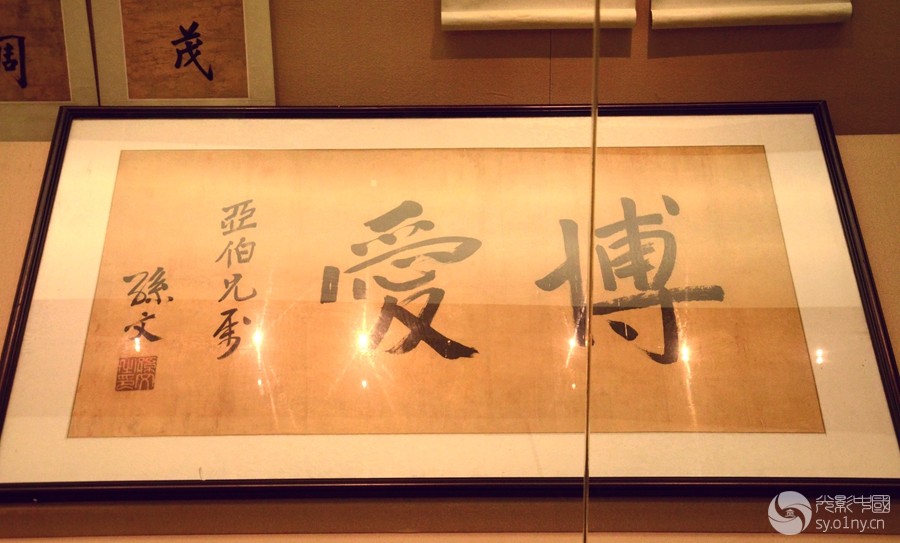 茂
博愛
亞伯兄屬
孫文
孫文之印
光影中國
sy.o1ny.cn